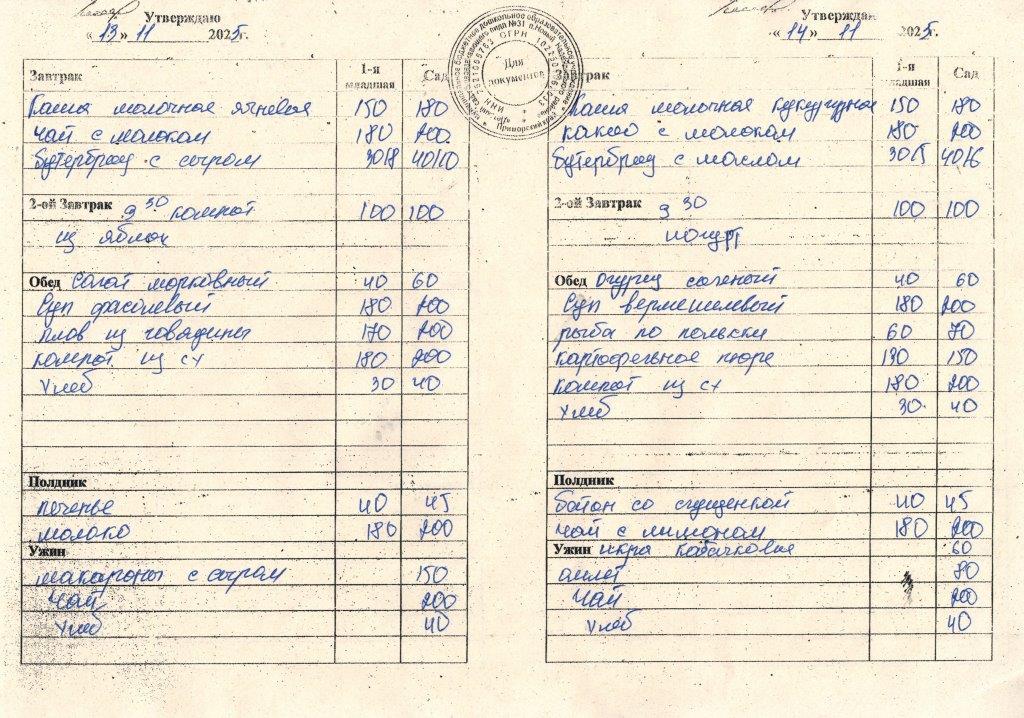 Утверждаю
« 13 » 11 2025г.
Завтрак 1-я младшая Сад
Каша молочная ячневая 150 180
Чай с молоком 180 200
Бутерброд с сыром 30/8 40/10
2-ой Завтрак 9 30 компот 100 100
из яблок
Обед Салат морковный 40 60
Суп фасолевый 180 200
плов из говядины 170 200
компот из с\х 180 200
Хлеб 30 40
Полдник
печенье 40 45
молоко 180 200
Ужин
макароны с сыром 150
Чай 200
Хлеб 40
Для документов
Утверждаю
« 14 » 11 2025г.
Завтрак 1-я младшая Сад
Каша молочная кукурузная 150 180
какао с молоком 180 200
Бутерброд с маслом 30/5 40/6
2-ой Завтрак 9 30 100 100
йогурт
Обед Огурец соленый 40 60
Суп вермешелевый 180 200
рыба по польски 60 70
картофельное пюре 130 150
компот из с\х 180 200
Хлеб 30 40
Полдник
Батон со сгущенкой 40 45
Чай с лимоном 180 200
Ужин икра кабачковая 60
омлет 80
Чай 200
Хлеб 40